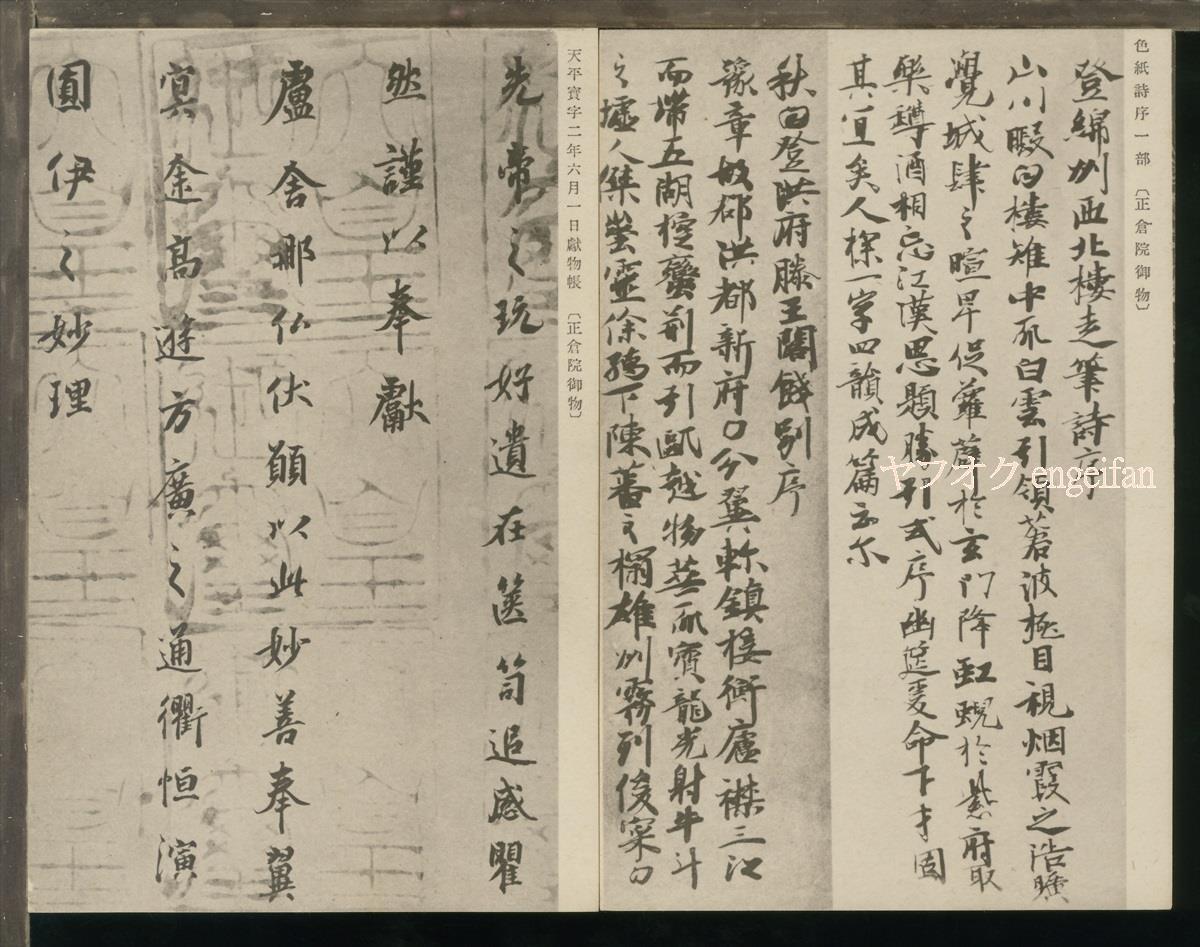 色紙詩序一部〔正倉院御物〕
登綿州西北樓走筆詩序
山川暇日樓雉中天白雲引領蒼波極目視烟霞之浩曠
覺城肆之喧卑促蘿薜於玄門降虹蜺於紫府取
樂罇酒相忘江漢思題勝引式序幽筵爰命下才固
其宜矣人探一字四韻成篇云尓
秋日登洪府滕王閣餞別序
豫章故郡洪都新府星分翼軫鎮接衡廬襟三江
而帶五湖控蠻荊而引甌越物華天寶龍光射牛斗
之墟人傑地靈徐孺下陳蕃之榻雄州霧列俊寀星
天平寶字二年六月一日獻物帳〔正倉院御物〕
先帝之玩好遺在篋笥追感瞿
然謹以奉獻
盧舍那仏伏願以此妙善奉翼
冥途高遊方廣之通衢恒演
圓伊之妙理
ヤフオク engeifan